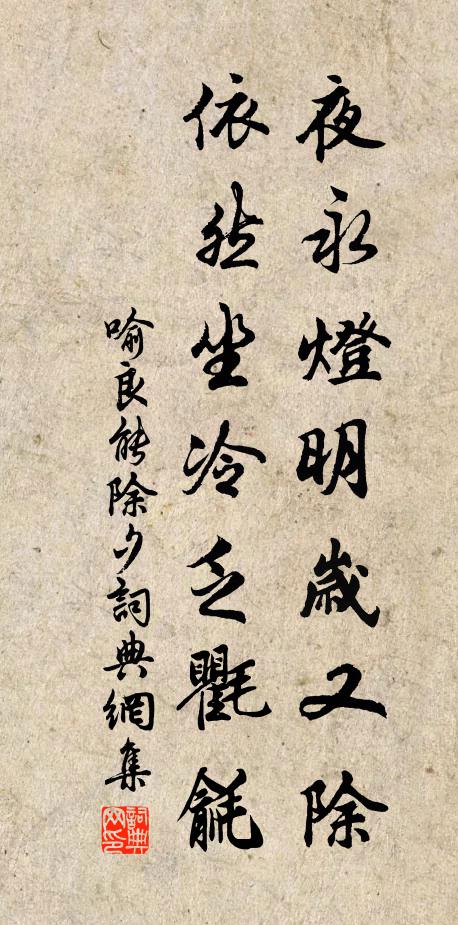 夜永燈明歲又除
依然坐冷乏氍毹
喻良能除夕詞典網集
詞典网印